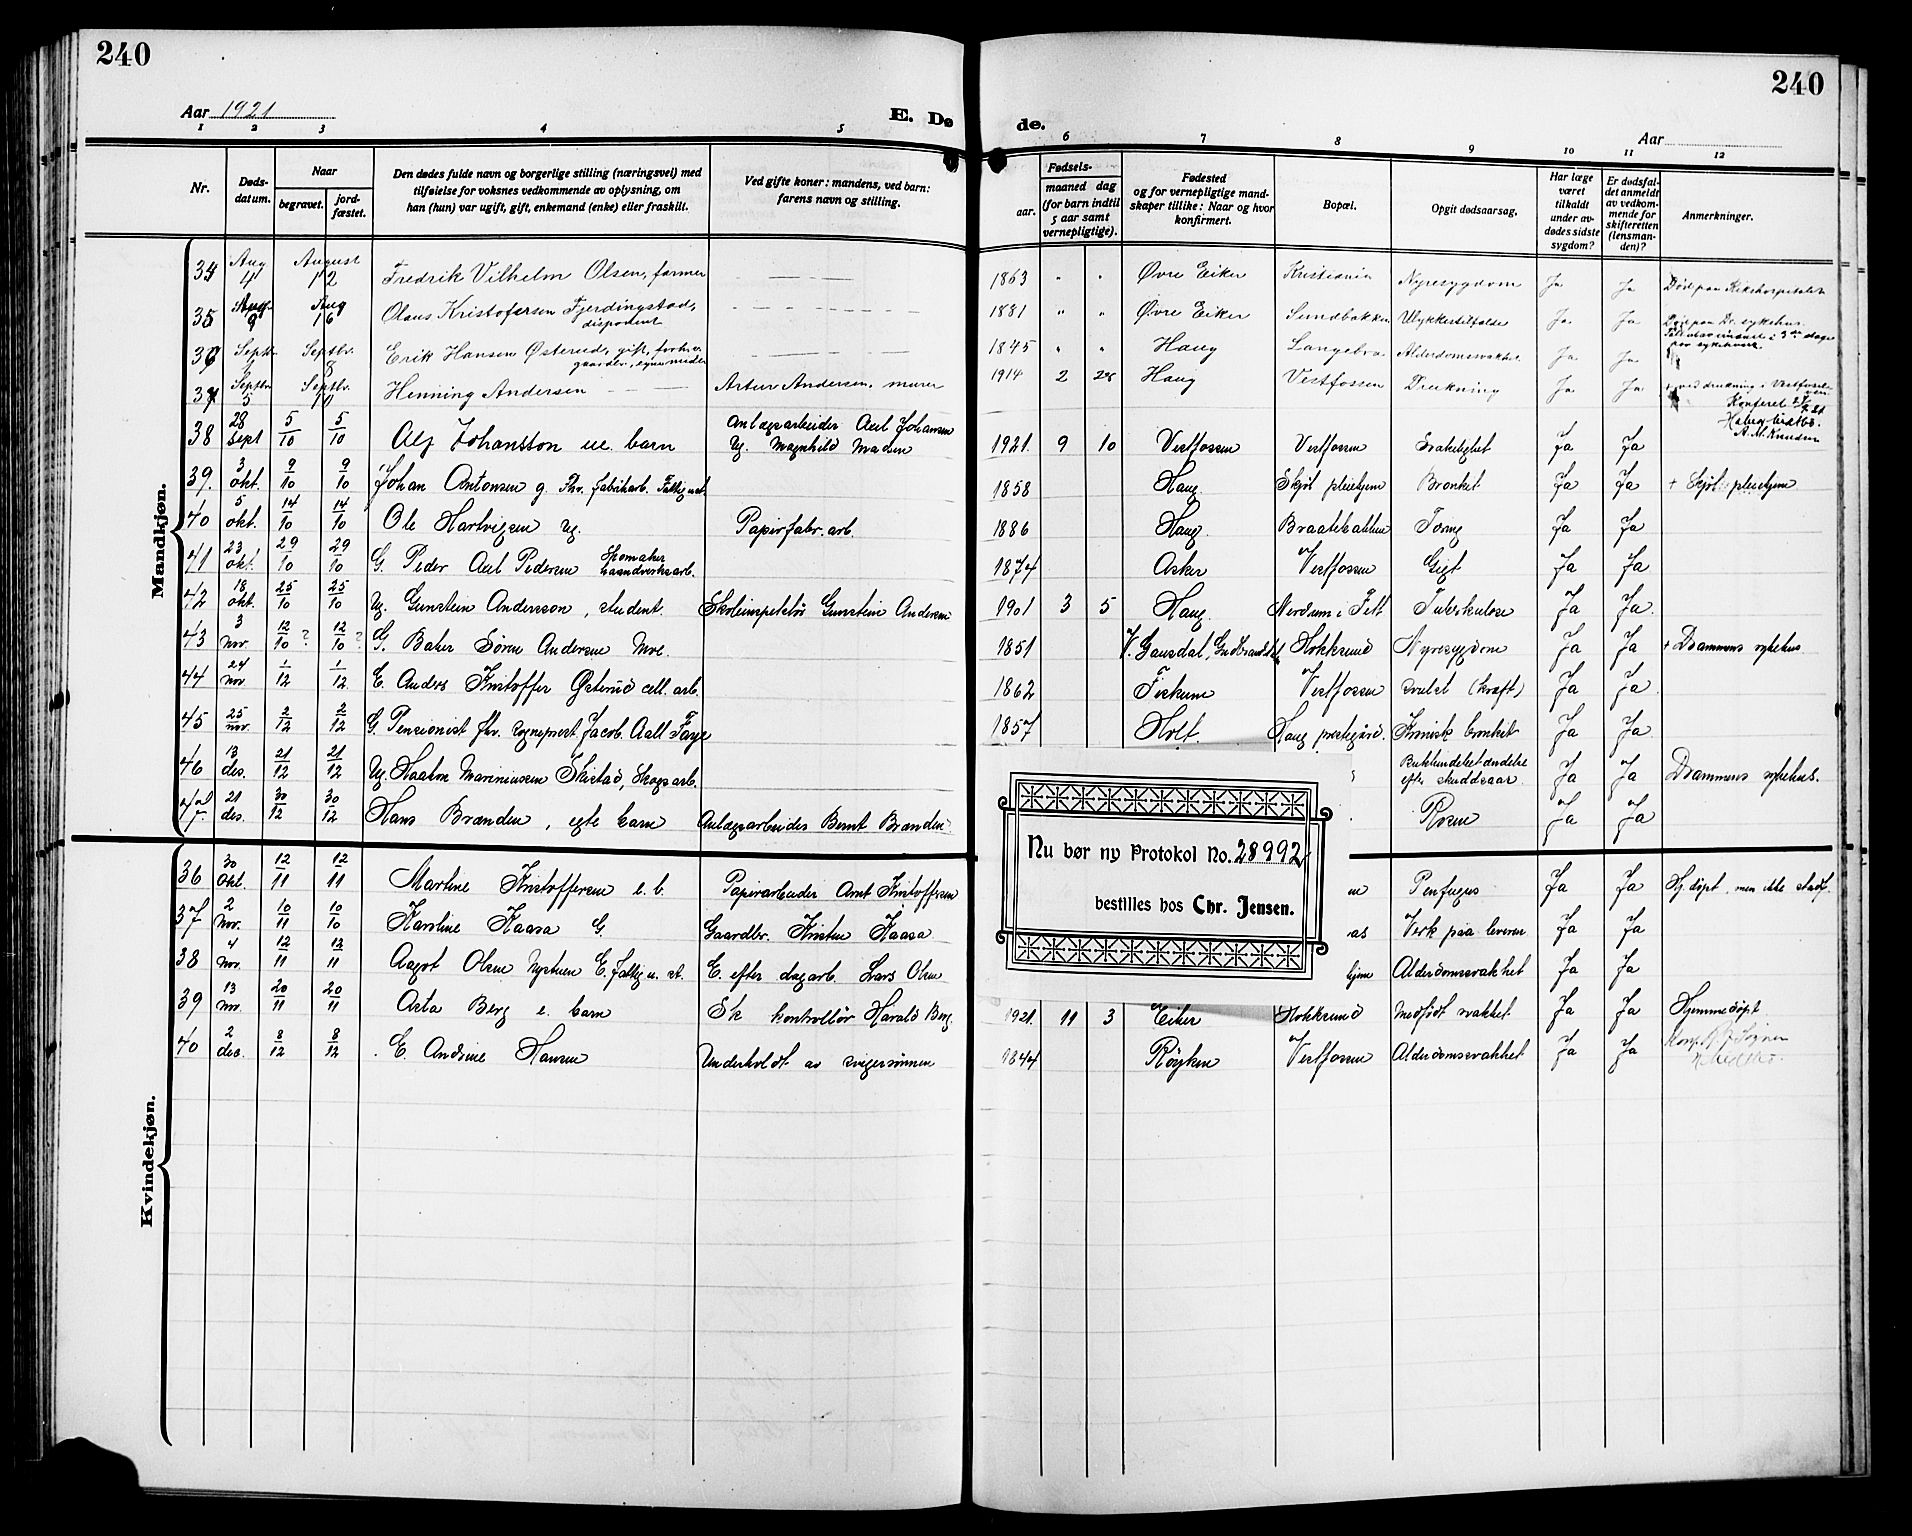 240
240
Aar 1921
E. Dø
de.
Aar
1 2 3 4 5 6 7 8 9 10 11 12
Nr.
Døds-
datum.
Naar
begravet.
jord-
fæstet.
Den dødes fulde navn og borgerlige stilling (næringsvei) med
tilføielse for voksnes vedkommende av oplysning, om
han (hun) var ugift, gift, enkemand (enke) eller fraskilt.
Ved gifte koner: mandens, ved barn:
farens navn og stilling.
Fødsels-
aar.
maaned dag
(for barn indtil
5 aar samt
vernepligtige).
Fødested
og for vernepligtige mand-
skaper tillike: Naar og hvor
konfirmert.
Bopæl.
Opgit dødsaarsag.
Har læge
været
tilkaldt
under av-
dødes sidste
sygdom?
Er dødsfal-
det anmeldt
av vedkom-
mende for
skifteretten
(lensman-
den)?
Anmerkninger.
Mandkjøn.
34 Aug 4 August 12 Fredrik Vilhelm Olsen, farmer 1863 " " Øvre Eiker Kristiania Nyresygdom Ja Ja Død paa Rikshospitalet
35 9 Aug 16 Olaus Kristofersen Fjerdingstad, disponent 1881 " " Øvre Eiker Sundbakken Ulykkestilfælde Ja Ja
36 Septbr 1 Septbr. 8 Erik Hansen Østerud, gift, 1845 " " Haug Langebro Alderdomssvakhet Ja Ja
37 Septbr 5 Septbr. 10 Henning Andersen Artur Andersen, murer 1914 2 28 Haug Vestfossen Drukning Ja Ja + ved drukning i Vestfosselven
Konferet
A. M. Knudsen
38 28 Sept 5/10 5/10 Alf Johansson ue. barn Anlægsarbeider Axel Johansen Ug. Magnhild Madsen 1921 9 10 Vestfossen Vestfossen Svakelighet Ja Ja
39. 3 okt. 9/10 9/10 Johan Antonsen g. Fhv. fabrikarb. Fattigunt. 1858 Haug Skjøl pleiehjem Bronkit Ja Ja + Skjøl pleiehjem
40 5 okt. 14/10 14/10 Ole Hartvigsen Ug. Papirfabr. arb. 1886 Haug. Braatekakken Ja Ja
41 23 okt. 29/10 29/10 G. Peder Axel Pedersen Skomaker haandverksarb. 1874 Asker Vestfossen Gigt Ja Ja
42 18 okt. 25/10 25/10 Ug. Gunstein Andersson, student. Skoleinspektør Gunstein Andersen 1901 3 5 Haug. Nerdrum i Fett Tuberkulose Ja Ja.
43 3 nov. 12/10 ? 12/10 ? G. Baker Søren Andersen Moe. 1851 V. Gausdal, Gudbrandsdal Hokksund Nyresygdom Ja Ja + Drammens sykehus.
44 24 nov. 1/12 1/12 E. Anders Kristoffer Østerud cell. arb. 1862 Fiskum Vestfossen Svulst (kræft) Ja Ja.
45 25 nov. 2/12 2/12 G. Pensionist fhv. sogneprest Jacob Aall Faye 1857 Holt. Haug prestegård. Kronisk bronkit Ja Ja
46 13 des. 21/12 21/12 Ug. Haakon Mariniussen Skistad, Skogsarb. Bukhindebetændelse efter skuddsaar. Ja Ja Drammens sykehus.
47. 21 des. 30/12 30/12 Hans Brænden, egte barn Anlægsarbeider Bernt Brænden Rosen Ja Ja
Nu bør ny Protokol No. 28992
bestilles hos Chr. Jensen.
Kvindekjøn.
36 30 Okt. 12/11 12/11 Martine Kristoffersen e. b. Papirarbeider Arnt Kristoffersen Penfugus Ja Ja Hj. døpt, men ikke stadf.
37 2 Nov. 10/11 10/10 Karoline Kaasa G. Gaardbr. Kristen Kaasa Verk paa leveren Ja Ja
38 4 Nov. 12/11 12/11 Aagot Olsen Nystuen E. fattig u. st. E. efter dagarb. Lars Olsen Alderdomssvakhet Ja Ja
39 13 Nov. 20/11 20/11 Asta Berg e. barn Sk kontrollør Harald Berg. 1921. 11 3 Eiker Hokksund Medfødt svakhet Ja Ja Hjemmedøpt
40 2 dec. 8/12 8/12 E. Andrine Hansen Underholdt av svigersønnen 1844 Røyken Vestfossen Alderdomssvakhet Ja Ja